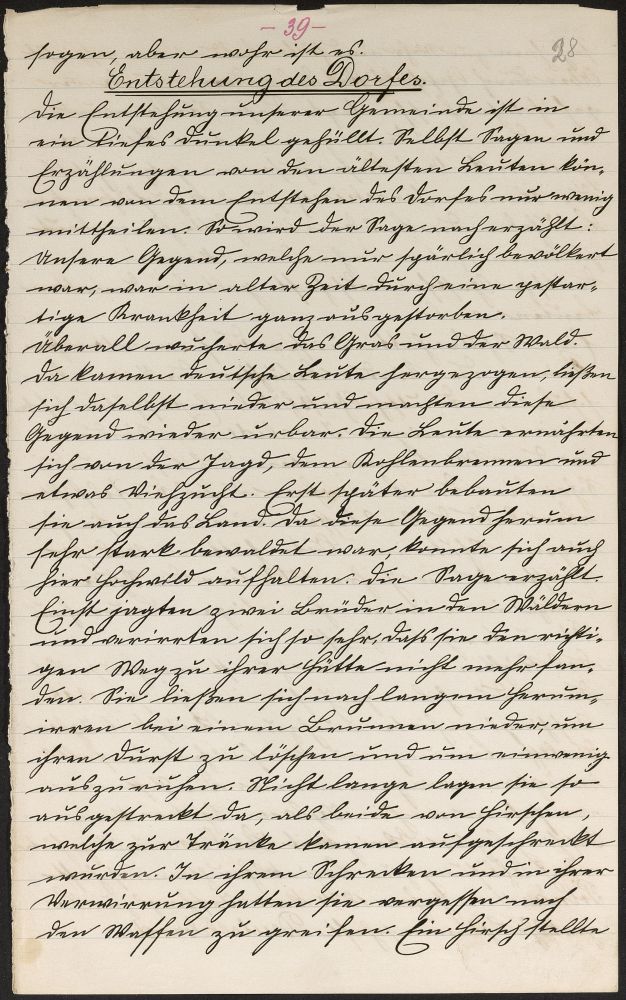 - 39 -
28
sogen, aber wahr ist es.
Entstehung des Dorfes.
Die Entstehung unserer Gemeinde ist in
ein tiefes Dunkel gehüllt. Selbst Sagen und
Erzählungen von den ältesten Leuten kön-
nen von dem Entstehen des Dorfes nur wenig
mittheilen. So wird der Sage nach erzählt:
Unsere Gegend, welche nur spärlich bevölkert
war, war in alter Zeit durch eine pestar-
tige Krankheit ganz ausgestorben.
Überall wucherte das Gras und der Wald.
Da kamen deutsche Leute hergezogen, ließen
sich daselbst nieder und machten diese
Gegend wieder urbar. Die Leute ernährten
sich von der Jagd, dem Kohlenbrennen und
etwas Viehzucht. Erst später bebauten
sie auch das Land. Da diese Gegend herum
sehr stark bewaldet war, konnte sich auch
hier Hochwild aufhalten. Die Sage erzählt.
Einst jagten zwei Brüder in den Wäldern
und verirrten sich so sehr, daß sie den richti-
gen Weg zu ihrer Hütte nicht mehr fan-
den. Sie ließen sich nach langem Herum-
irren bei einem Brunnen nieder, um
ihren Durst zu löschen und um einwenig
auszuruhen. Nicht lange lagen sie so
ausgestreckt da, als beide von Hirschen,
welche zur Tränke kamen aufgeschreckt
wurden. In ihrem Schrecken und in ihrer
Verwirrung hatten sie vergessen nach
den Waffen zu greifen. Ein Hirsch stellte